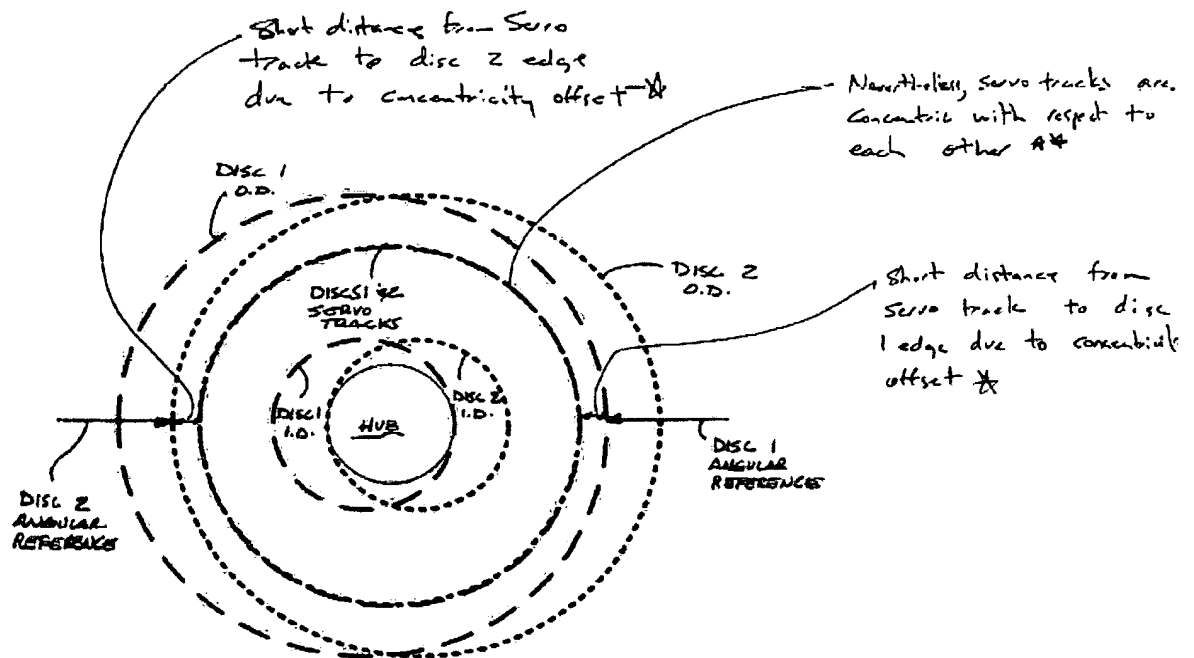 Short distance from Servo
track to disc 2 edge
due to concentricity offset ☆
Nevertheless, servo tracks are
concentric with respect to
each other ☆☆
DISC 1
O.D.
DISC 2
O.D.
Short distance from
Servo track to disc
1 edge due to
offset ☆
DISCS 1 & 2
SERVO
TRACKS
DISC 1
I.D.
HUB
DISC 2
I.D.
DISC 1
ANGULAR
REFERENCE
DISC 2
ANGULAR
REFERENCE